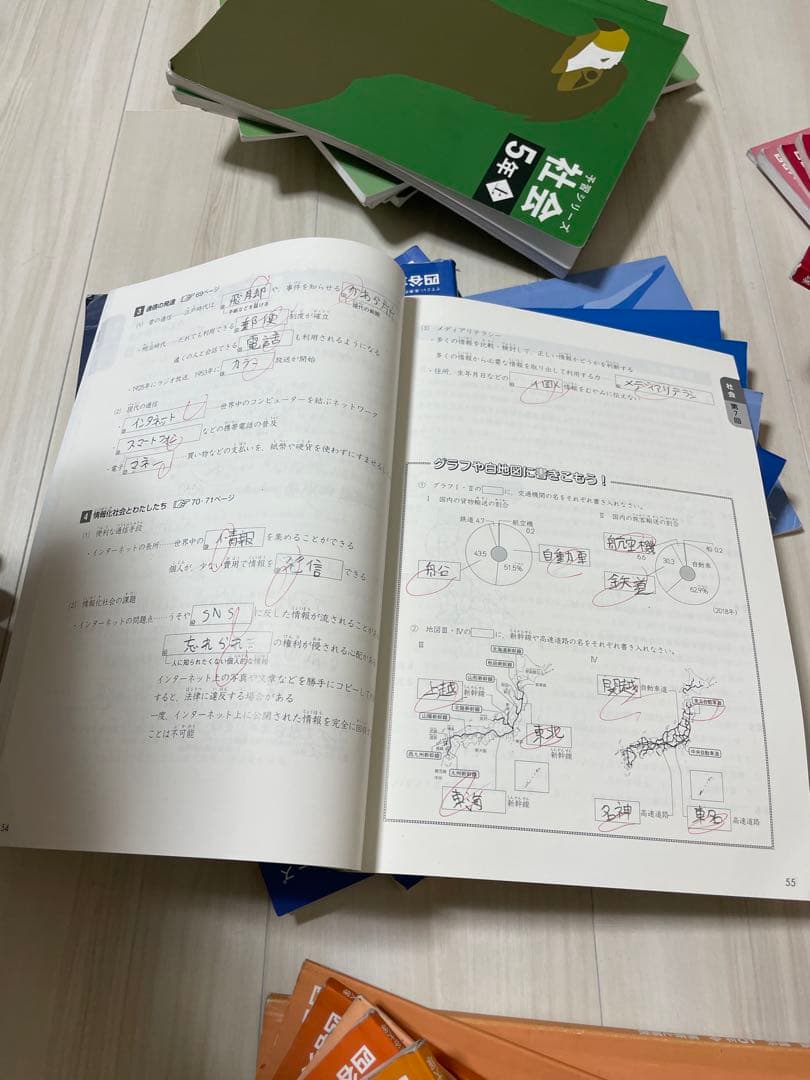 予習シリーズ
社会
5年 上
四谷
3 通信の発達 69ページ
(1) 昔の通信…江戸時代は 飛脚 や、事件を知らせる かわら版
手紙などを届ける
現代の新聞
・明治時代…だれでも利用できる 郵便 制度が確立
遠くの人と会話できる 電話 も利用されるようになる
・1925年にラジオ放送、1953年に カラー 放送が開始
(2) 現代の通信
・インターネット……世界中のコンピューターを結ぶネットワーク
・スマートフォン などの携帯電話の普及
・電子 マネー……買い物などの支払いを、紙幣や硬貨を使わずにすませる
4 情報化社会とわたしたち 70・71ページ
(1) 便利な通信手段
・インターネットの長所……世界中の 情報 を集めることができる
個人が、少ない費用で情報を 発信 できる
(2) 情報化社会の課題
・インターネットの問題点……うそや SNS に反した情報が流されることが
忘れられる の権利が侵される心配がある
人に知られたくない個人的な情報
インターネット上の写真や文章などを勝手にコピーして
すると、法律に違反する場合がある
一度、インターネット上に公開された情報を完全に回収
ことは不可能
54
(3) メディアリテラシー
・多くの情報を比較・検討して、正しい情報かどうかを判断する
多くの情報から必要な情報を取り出して利用する力… メディアリテラシ
・住所、生年月日などの 個人 情報をむやみに伝えない
社会 第7回
グラフや白地図に書きこもう!
① グラフⅠ・Ⅱの に、交通機関の名をそれぞれ書き入れなさい。
Ⅰ 国内の貨物輸送の割合
鉄道 4.7
航空機 0.2
43.5
51.5%
船谷
自動車
Ⅱ 国内の旅客輸送の割合
航空機
6.6
船 0.2
30.3
自動車
62.9%
鉄道
(2018年)
② 地図Ⅲ・Ⅳの に、新幹線や高速道路の名をそれぞれ書き入れなさい。
Ⅲ
北海道新幹線
秋田新幹線
山形新幹線
上越 新幹線
北陸新幹線
山陽新幹線
東北 新幹線
西九州新幹線
九州新幹線
東海 新幹線
Ⅳ
関越 自動車道
東北自動車道
中央自動車道
名神 高速道路
東名 高速道路
55
四谷
四谷